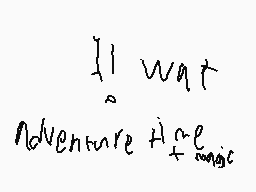 I! wat
Adventure time
+ magic